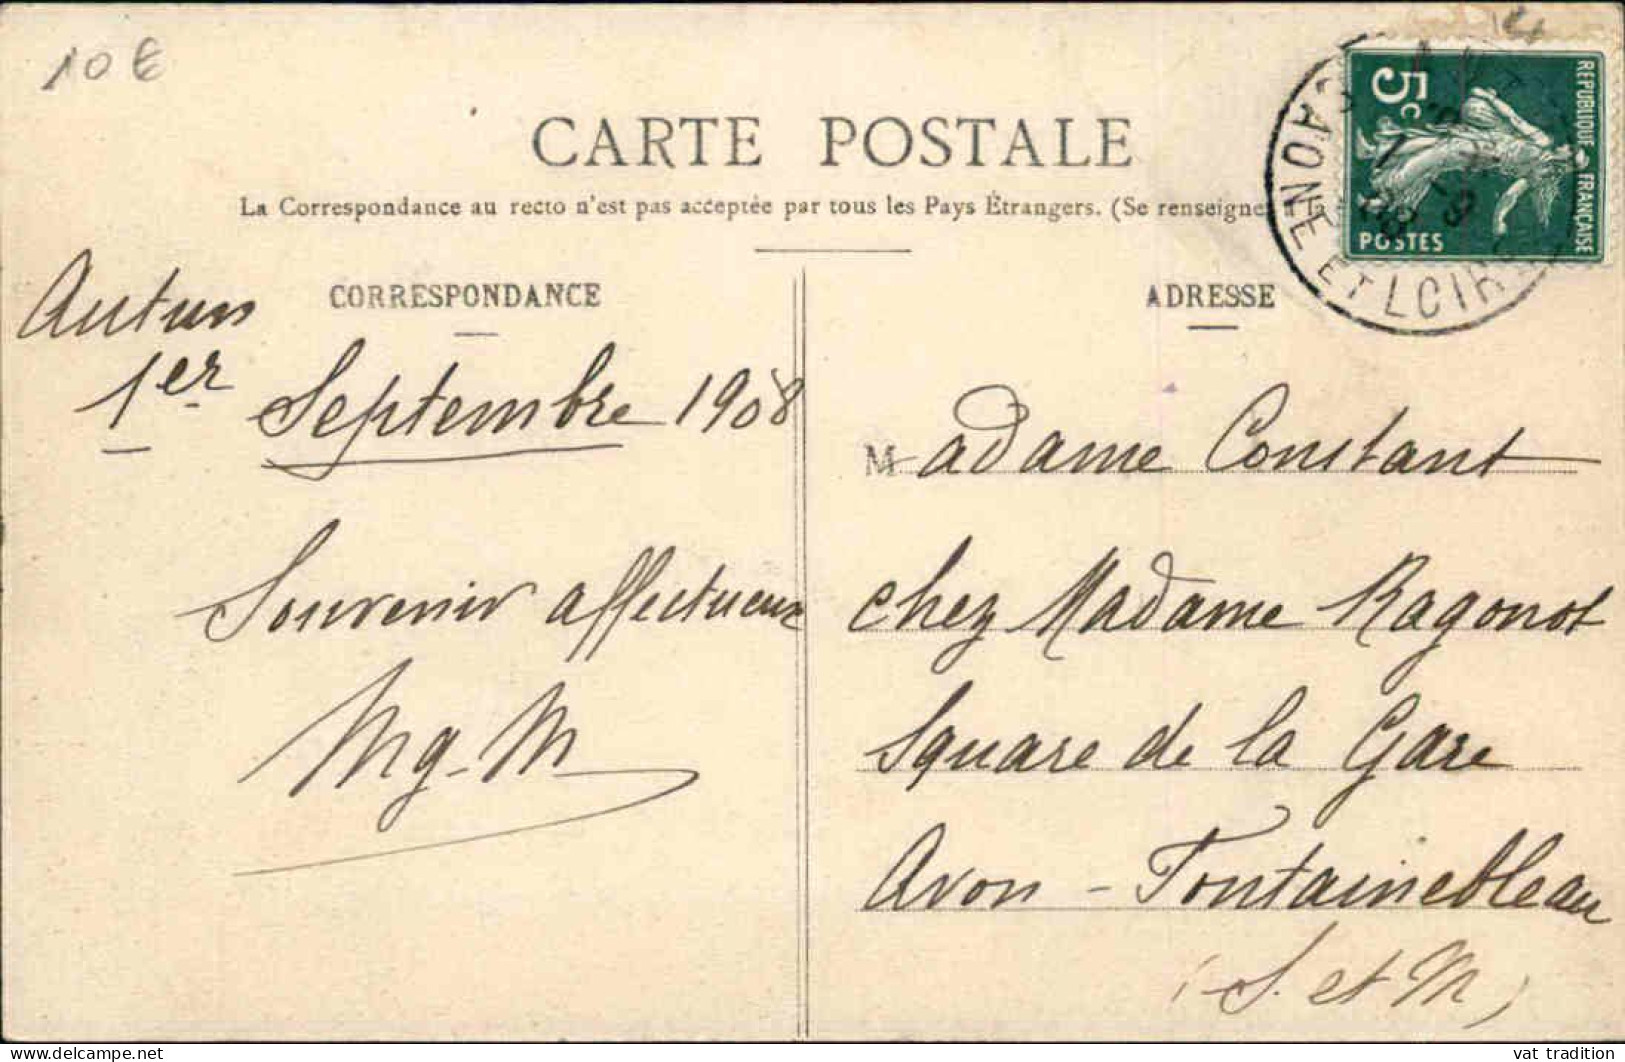 10 €
CARTE POSTALE
La Correspondance au recto n'est pas acceptée par tous les Pays Étrangers. (Se renseigne
5c
REPUBLIQUE FRANÇAISE
POSTES
SAONE ET LOIRE
CORRESPONDANCE
Autun
1er Septembre 1908
Souvenir affectueux
Mg. M
ADRESSE
Madame Constant
chez Madame Ragonot
Square de la Gare
Avon - Fontainebleau
(S. et M)
vat tradition